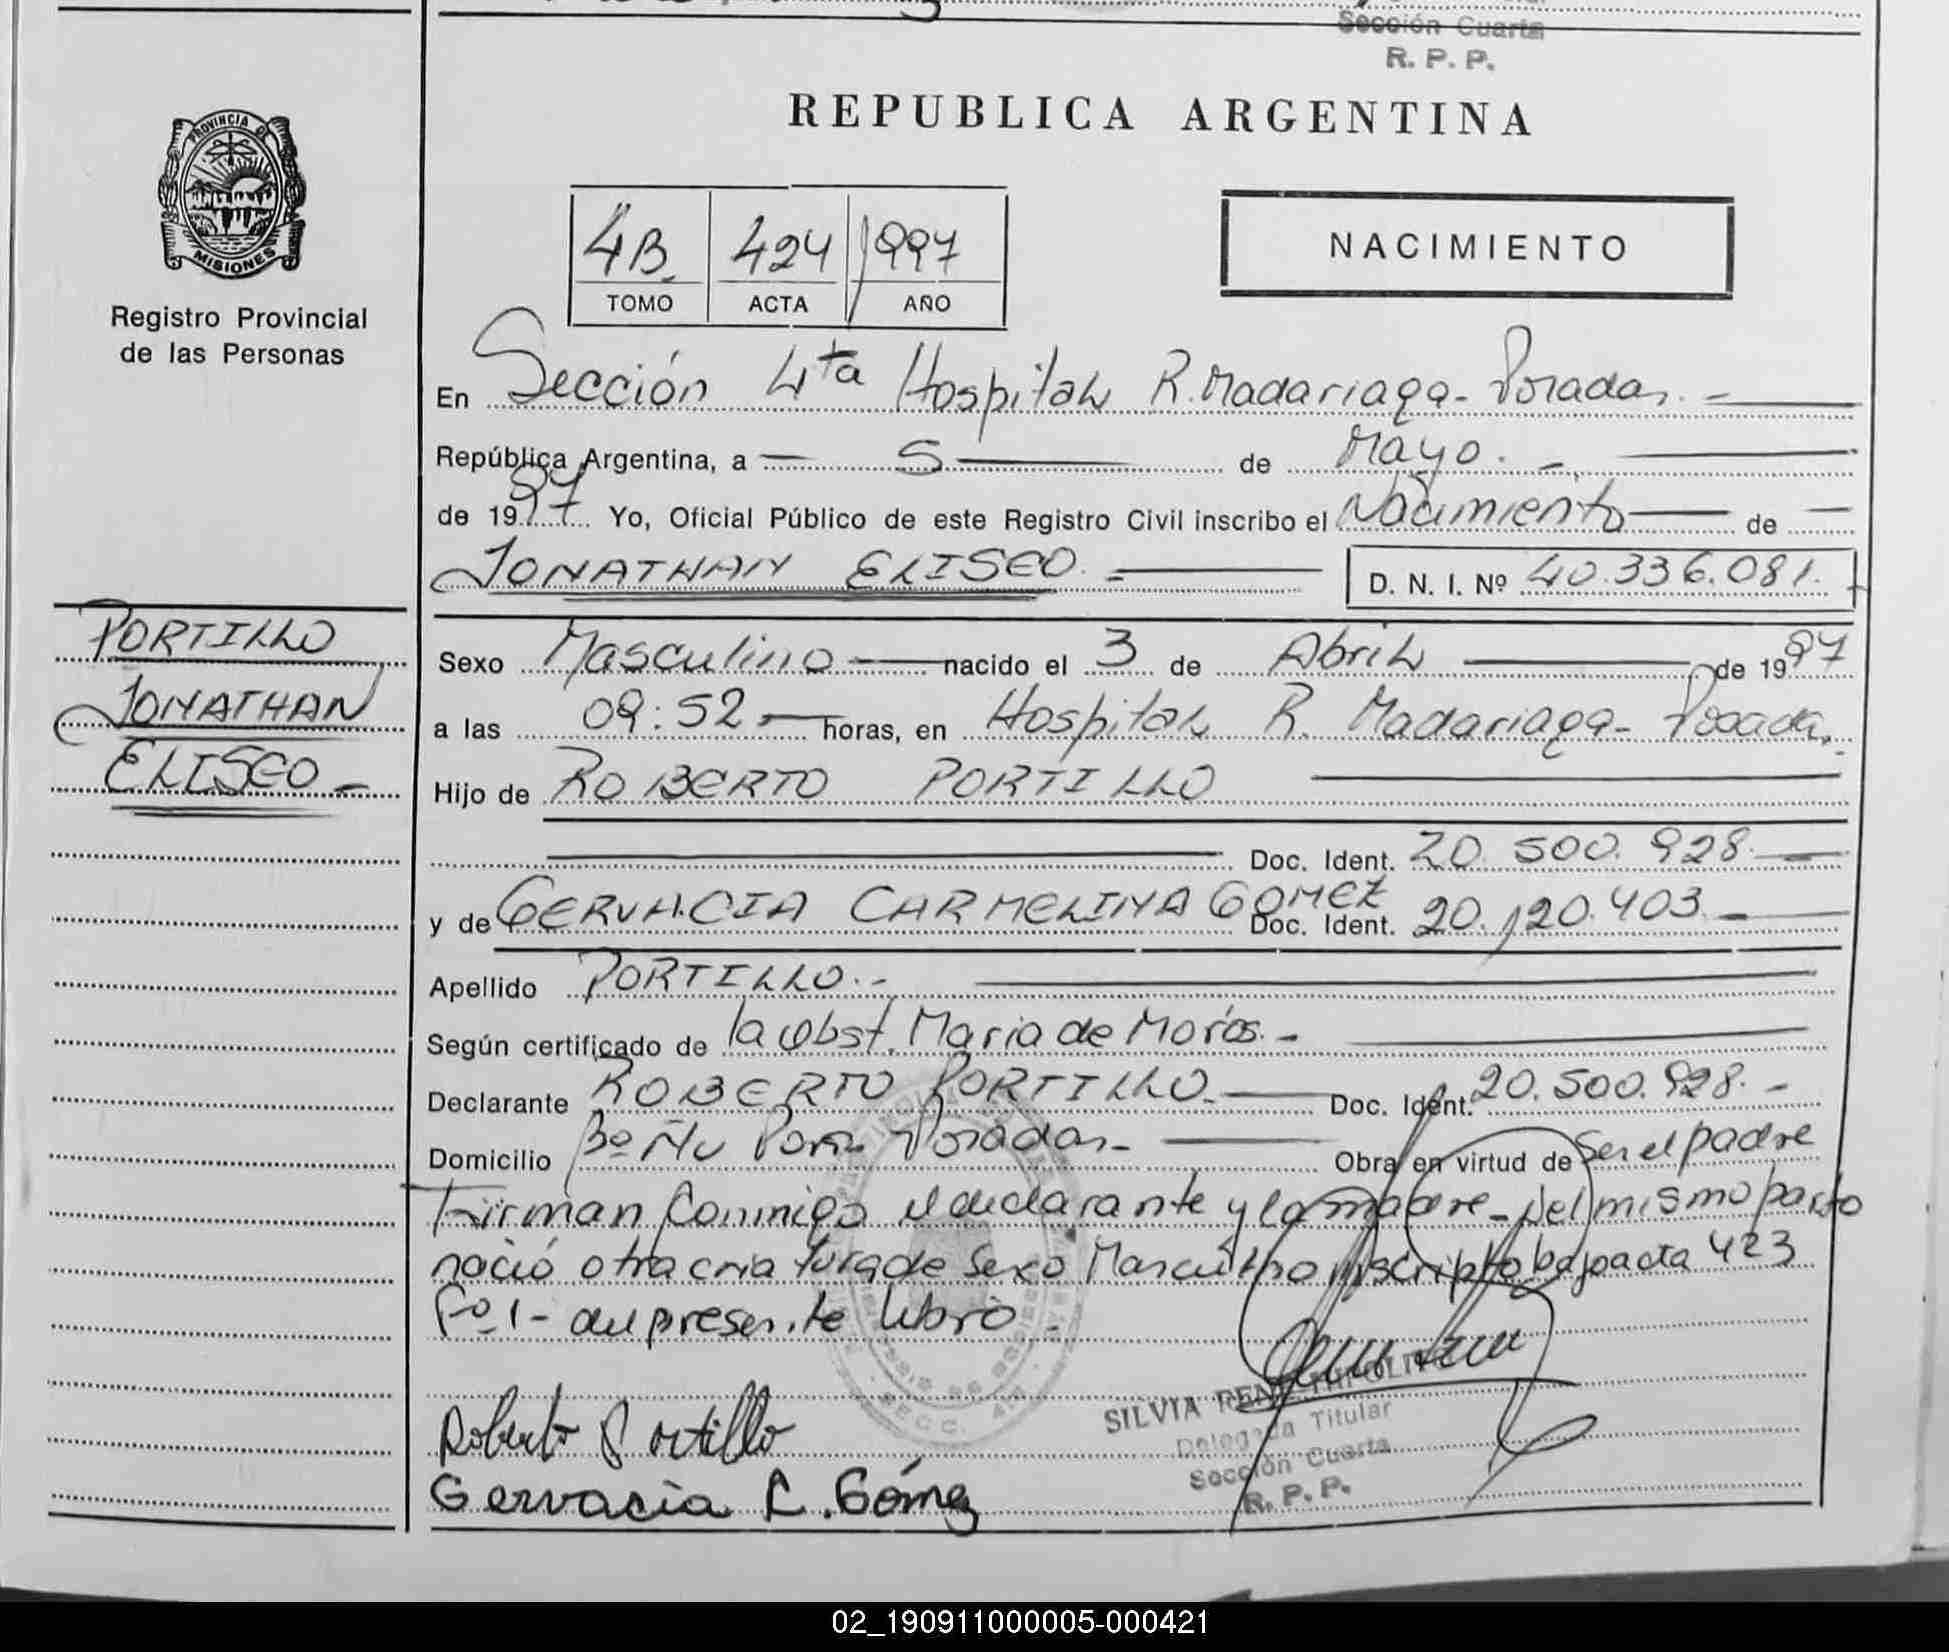 Sección Cuarta
R. P. P.
REPUBLICA ARGENTINA
PROVINCIA DE
MISIONES
Registro Provincial
de las Personas
4B 424 1997
TOMO ACTA AÑO
NACIMIENTO
En Sección 4ta Hospital R. Madariaga - Posadas. -
República Argentina, a - 5 - de Mayo. -
de 1997. Yo, Oficial Público de este Registro Civil inscribo el Nacimiento - de -
JONATHAN ELISEO. - D. N. I. Nº 40.336.081.
PORTILLO
JONATHAN
ELISEO -
Sexo Masculino - nacido el 3 de Abril - de 1997
a las 09:52 - horas, en Hospital R. Madariaga - Posadas. -
Hijo de ROBERTO PORTILLO -
Doc. Ident. 20.500.928 -
y de GERVACIA CARMELINA GOMEZ Doc. Ident. 20.120.403 -
Apellido PORTILLO. -
Según certificado de la Obst. Maria de Morós. -
Declarante ROBERTO PORTILLO. - Doc. Ident. 20.500.928. -
Domicilio Bº Ñu Porá Posadas - Obra en virtud de ser el padre
Firman Conmigo el declarante y la madre - Del mismo parto
nació otra criatura de Sexo Masculino inscripto bajo acta 423
Fº 1 - del presente libro -
Roberto Portillo
Gervacia C. Gómez
SILVIA RENE HIPOLITO
Delegada Titular
Sección Cuarta
R. P. P.
02_190911000005-000421